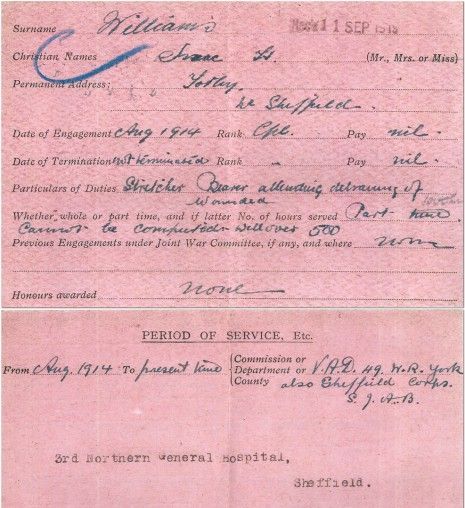 Surname Williams 11 SEP 1919
Christian Names Isaac H. (Mr., Mrs. or Miss)
Permanent Address: Totley,
Nr Sheffield.
Date of Engagement Aug 1914 Rank Cpl. Pay nil.
Date of Termination not terminated Rank " Pay nil.
Particulars of Duties Stretcher Bearer attending detraining of
wounded
Whether whole or part time, and if latter No. of hours served Part time
Cannot be computed well over 500
Previous Engagements under Joint War Committee, if any, and where none
Honours awarded none
PERIOD OF SERVICE, Etc.
From Aug. 1914 To present time Commission or
Department or
County V.A.D. 49. W.R. York
also Sheffield Corps.
S.J.A.B.
3rd Northern General Hospital,
Sheffield.